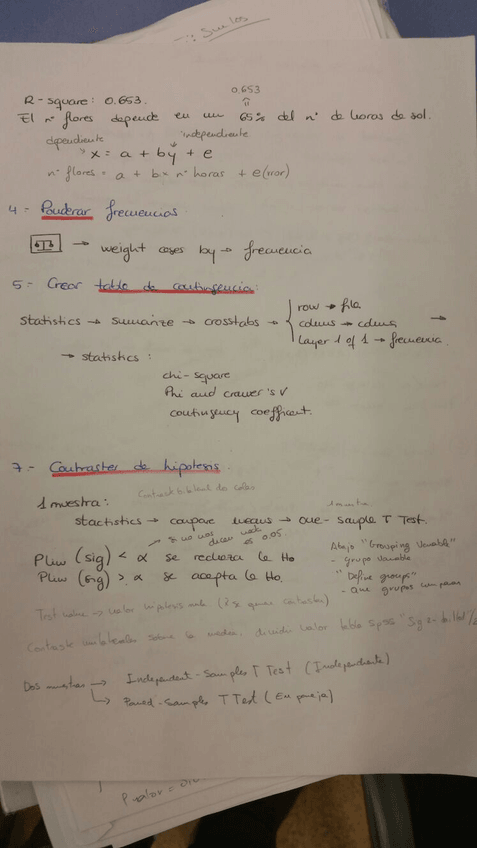 Sin los
0.653
R-square: 0.653.
El nº flores depende en un 65% del nº de horas de sol.
dependiente independiente
x = a + by + e
nº flores = a + b = nº horas + e(rror)
4 - Ponderar frecuencias
→ weight cases by → frecuencia
5 - Crear tabla de contingencia:
statistics → sumarize → crosstabs →
row → fila
colums → colums
Layer 1 of 1 → frecuencia.
→ statistics:
chi-square
Phi and cramer's V
contingency coefficent.
7 - Contrastes de hipotesis.
1 muestra:
stactistics → compare means → one-sample T Test.
→ si no nos dicen nada es 0.05.
Abajo "Grouping Variable"
- Grupo Variable
"Define groups"
- Que grupos comparan
P valor (sig) < α se rechaza la Ho
P valor (sig) > α se acepta la Ho.
Test value → valor hipotesis nula (
Contraste unilateral sobre la media, dividir valor tabla spss "Sig 2-tailed"/2
Dos muestras → Independent-Samples T Test (Independiente)
→ Paired-Samples T Test (En pareja)
P-valor =